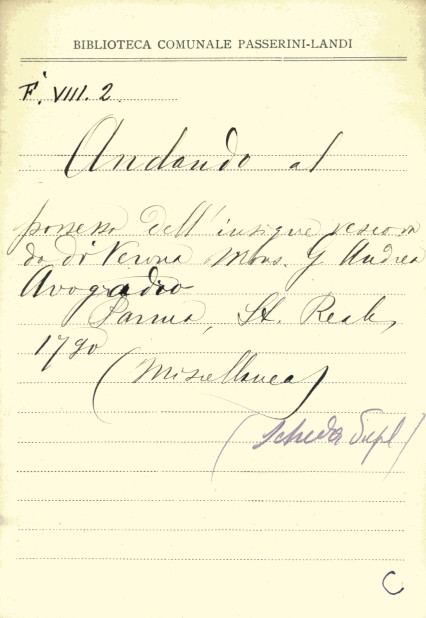 BIBLIOTECA COMUNALE PASSERINI-LANDI
F. VIII. 2.
Andando al
possesso dell'insigne vescova
do di Verona Mons. G Andrea
Avogradro
Parma, St. Reale,
1790
(Miscellanea)
(Scheda Dupl)
C